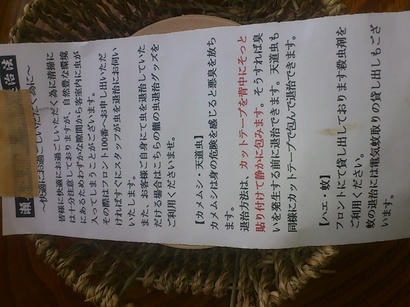 退治法
～快適にお過ごしいただく為に～
皆様に快適にお過ごしいただく為に清掃に
は十分注意しておりますが、自然豊な環境
にあるためわずかな隙間から客室内に虫が
入ってしまうことがございます。
その際はフロント100番へお申し出いただ
ければすぐにスタッフが虫を退治にお伺い
いたします。
また、お客様ご自身にて虫を退治していた
だける場合はこちらの籠の虫退治グッズを
ご利用くださいませ。
【カメムシ・天道虫】
カメムシは身の危険を感じると悪臭を放ち
ます。
退治方法は、カットテープを背中にそっと
貼り付けて静かに包みます。そうすれば臭
いを発生する前に退治できます。天道虫も
同様にカットテープで包んで退治できます。
【ハエ・蚊】
フロントにて貸し出しております殺虫剤を
ご利用ください。
蚊の退治には電気蚊取りの貸し出しもござ
います。